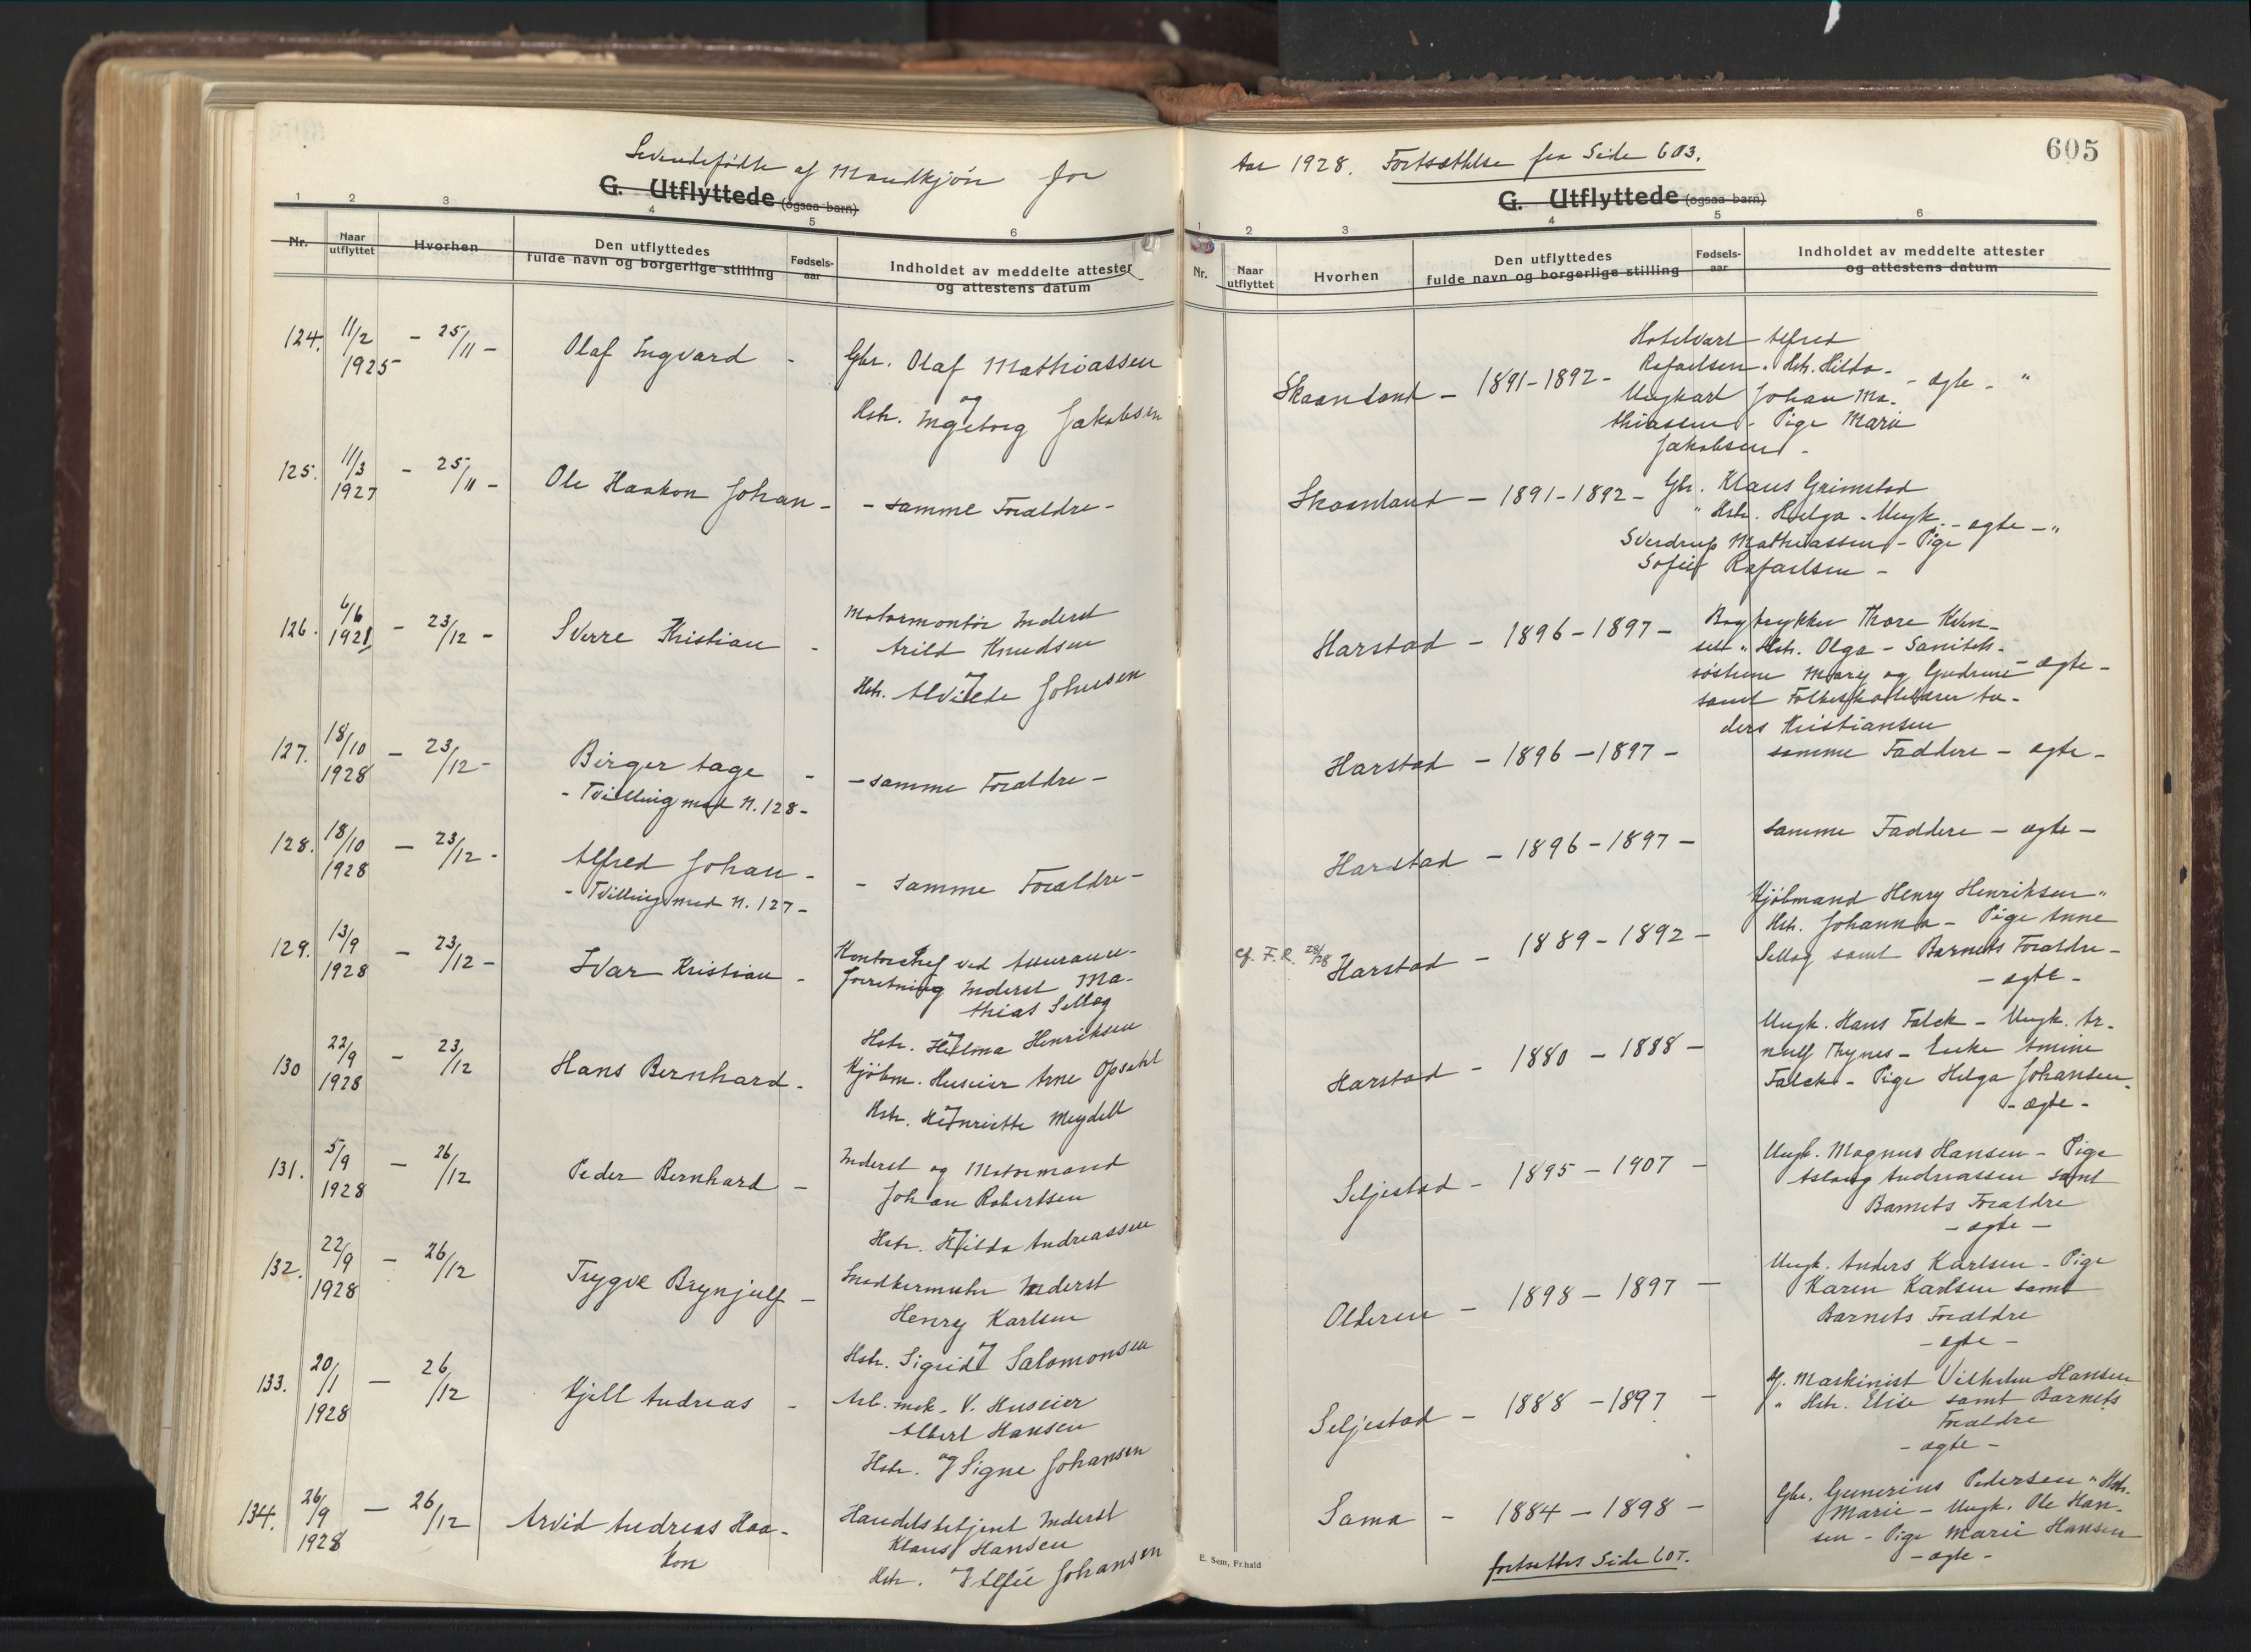 Levendefødte af Mandkjøn for
G. Utflyttede (ogsaa barn)
1 2 3 4 5 6
Nr.
Naar utflyttet
Hvorhen
Den utflyttedes
fulde navn og borgerlige stilling
Fødsels-
aar
Indholdet av meddelte attester
og attestens datum
124. 11/2 1925 - 25/11 - Olaf Ingvard -
Gbr. Olaf Mathiassen
og
Hstr. Ingeborg Jakobsen
125. 11/3 1927 - 25/11 - Ole Haakon Johan -
- samme Forældre -
126. 6/6 1921 - 23/12 - Sverre Kristian -
Motormontør Inderst
Arild Knudsen
og
Hstr. Alvilde Johnsen
127. 18/10 1928 - 23/12 - Birger Aage -
- Tvilling med N. 128 -
- samme Forældre -
128. 18/10 1928 - 23/12 - Alfred Johan -
- Tvilling med N. 127 -
- samme Forældre -
129. 13/9 1928 - 23/12 - Ivar Kristian -
Kontorchef ved Assurance-
forretning Inderst Ma-
thias Selløg
og
Hstr. Helma Henriksen
130 22/9 1928 - 23/12 Hans Bernhard -
Kjøbm. Huseier Arne Opsahl
og
Hstr. Henriette Meydell
131. 5/9 1928 - 26/12 Peder Bernhard -
Inderst og Motormand
Johan Robertsen
og
Hstr. Hilda Andreassen
132. 22/9 1928 - 26/12 Trygve Brynjulf -
Snedkermester Inderst
Henry Karlsen
og
Hstr. Sigrid Salomonsen
133. 20/1 1928 - 26/12 Kjell Andreas -
Arb. mek. V. Huseier
Albert Hansen
og
Hstr. Signe Johansen
134. 26/9 1928 - 26/12 Arvid Andreas Haa-
kon
Handelsbetjent Inderst
Klaus Hansen
og
Hstr. Alfie Johansen
605
Aar 1928. Fortsættelse fra Side 603.
G. Utflyttede (ogsaa barn)
1 2 3 4 5 6
Nr.
Naar
utflyttet
Hvorhen
Den utflyttedes
fulde navn og borgerlige stilling
Fødsels-
aar
Indholdet av meddelte attester
og attestens datum
Skaanland - 1891-1892 -
Hotelvært Alfred
Rafaelsen. Hstr. Hilda -
Ungkarl Johan Ma-
thiassen - Pige Marie
Jakobsen -
- ægte - "
Skaanland - 1891-1892 -
Gbr. Klaus Grimstad
" Hstr. Helga - Ungk.
Sverdrup Mathiassen - Pige
Sofie Rafaelsen -
- ægte - "
Harstad - 1896-1897 -
Bogtrykker Thore Kven-
seth " Hstr. Olga - Sanitets-
søstrene Mary og Gudrun - ægte -
samt Folkeskolelærer An-
ders Kristiansen
Harstad - 1896-1897 - samme Faddere - ægte -
Harstad - 1896-1897 - samme Faddere - ægte -
cf. F.R. 28/28 Harstad - 1889-1892 -
Kjøbmand Henry Henriksen "
Hstr. Johanna - Pige Anne
Selløg samt Barnets Forældre -
- ægte -
Harstad - 1880 - 1888 -
Ungk. Hans Falck - Ungk. Ar-
nulf Thynes - Enke Amine
Falck - Pige Helga Johansen -
- ægte -
Seljestad - 1895 - 1907 -
Ungk. Magnus Hansen - Pige
Aslaug Andreassen samt
Barnets Forældre
- ægte -
Olderen - 1898 - 1897 -
Ungk. Anders Karlsen - Pige
Karen Karlsen samt
Barnets Forældre
- ægte -
Seljestad - 1888 - 1897 -
Maskinist Vilhelm Hansen
" Hstr. Elise samt Barnets
Forældre
- ægte -
Sama - 1884 - 1898 -
Gbr. Gunerius Pedersen " Hstr.
Marie - Ungk. Ole Han-
sen - Pige Marie Hansen
- ægte -
E. Sem, Fr.hald
fortsættes Side 607.